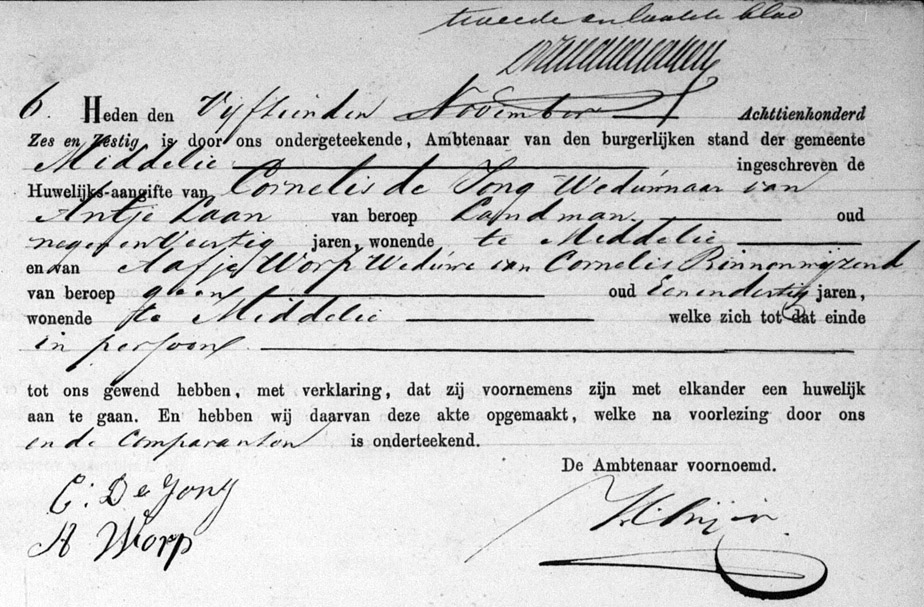 tweede en laatste blad
6. Heden den Vijftienden November Achttienhonderd
Zes en Zestig is door ons ondergeteekende, Ambtenaar van den burgerlijken stand der gemeente
Middelie ingeschreven de
Huwelijks-aangifte van Cornelis de Jong Weduwnaar van
Antje Laan van beroep Landman oud
negen en Veertig jaren, wonende te Middelie
en van Aafje Worp Weduwe van Cornelis Binnenwijzend
van beroep geen oud Een en dertig jaren,
wonende te Middelie welke zich tot dat einde
in persoon
tot ons gewend hebben, met verklaring, dat zij voornemens zijn met elkander een huwelijk
aan te gaan. En hebben wij daarvan deze akte opgemaakt, welke na voorlezing door ons
en de Comparanten is onderteekend.
De Ambtenaar voornoemd.
C: De Jong
A Worp